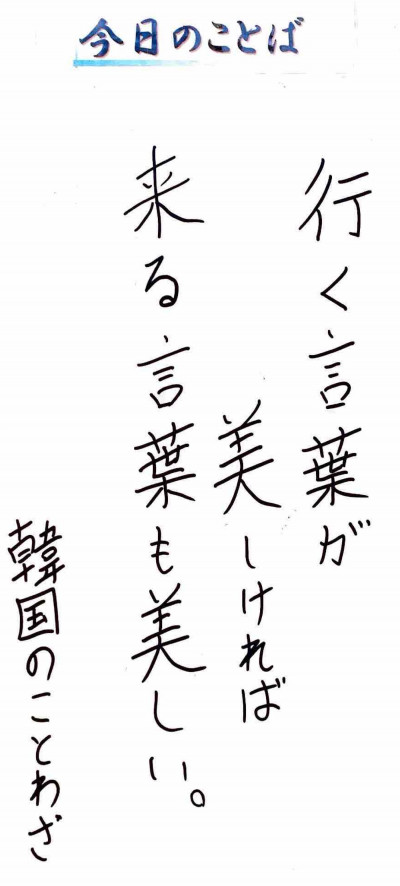 今日のことば
行く言葉が
美しければ
来る言葉も美しい。
韓国のことわざ